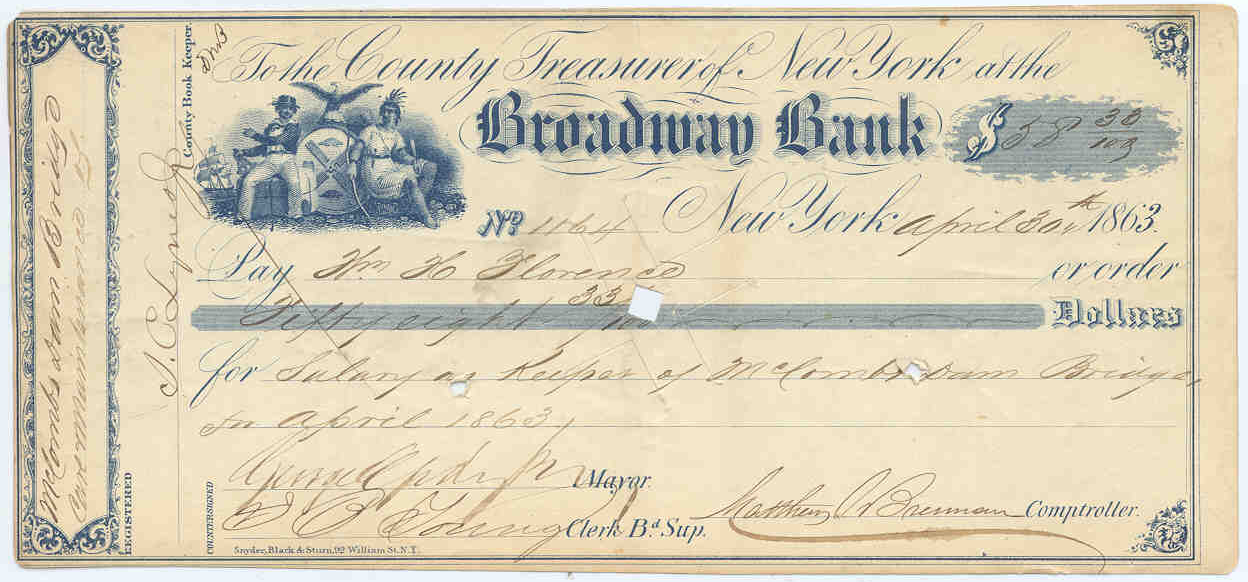 To the County Treasurer of New York at the
Broadway Bank
$ 58 33/100
No. 1064 New York April 30th 1863.
Pay Wm H Florence or order
Fifty eight 33/100 Dollars
for Salary as Keeper of McCombs Dam Bridge,
for April 1863
Mayor.
COUNTERSIGNED
I B Young Clerk Bd. Sup.
Matthew Brennan Comptroller.
Snyder, Black & Sturn, 92 William St. N.Y.
County Book Keeper.
REGISTERED
McCombs Dam Bridge
Care maintenance &c